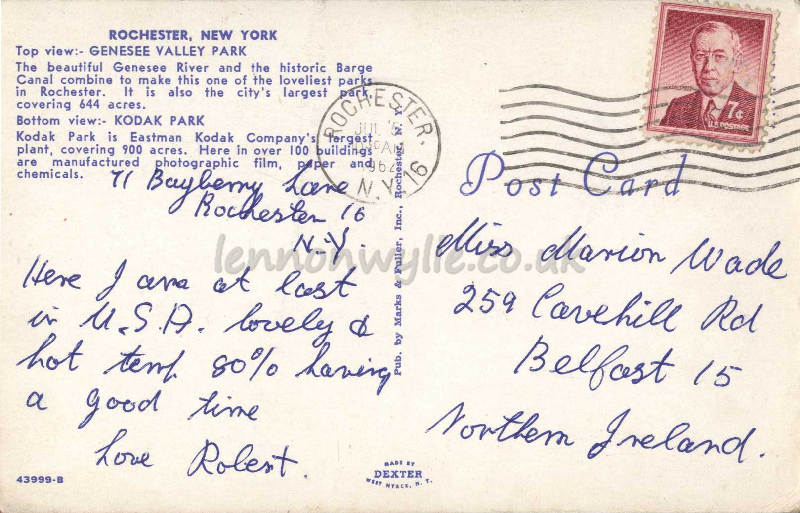 ROCHESTER, NEW YORK
Top view:- GENESEE VALLEY PARK
The beautiful Genesee River and the historic Barge
Canal combine to make this one of the loveliest parks
in Rochester. It is also the city's largest park,
covering 644 acres.
Bottom view:- KODAK PARK
Kodak Park is Eastman Kodak Company's largest
plant, covering 900 acres. Here in over 100 buildings
are manufactured photographic film, paper and
chemicals.
71 Bayberry Lane
Rochester 16
N.Y.
Here I am at last
in U.S.A. lovely &
hot temp 80% having
a good time
Love Robert.
43999-B
Pub. by Marks & Fuller, Inc., Rochester, N. Y.
MADE BY
DEXTER
WEST NYACK, N. Y.
ROCHESTER,
JUL
AM
1962
N.Y. 16
7¢
U.S. POSTAGE
Post Card
Miss Marion Wade
259 Cavehill Rd
Belfast 15
Northern Ireland.
lennonwylie.co.uk